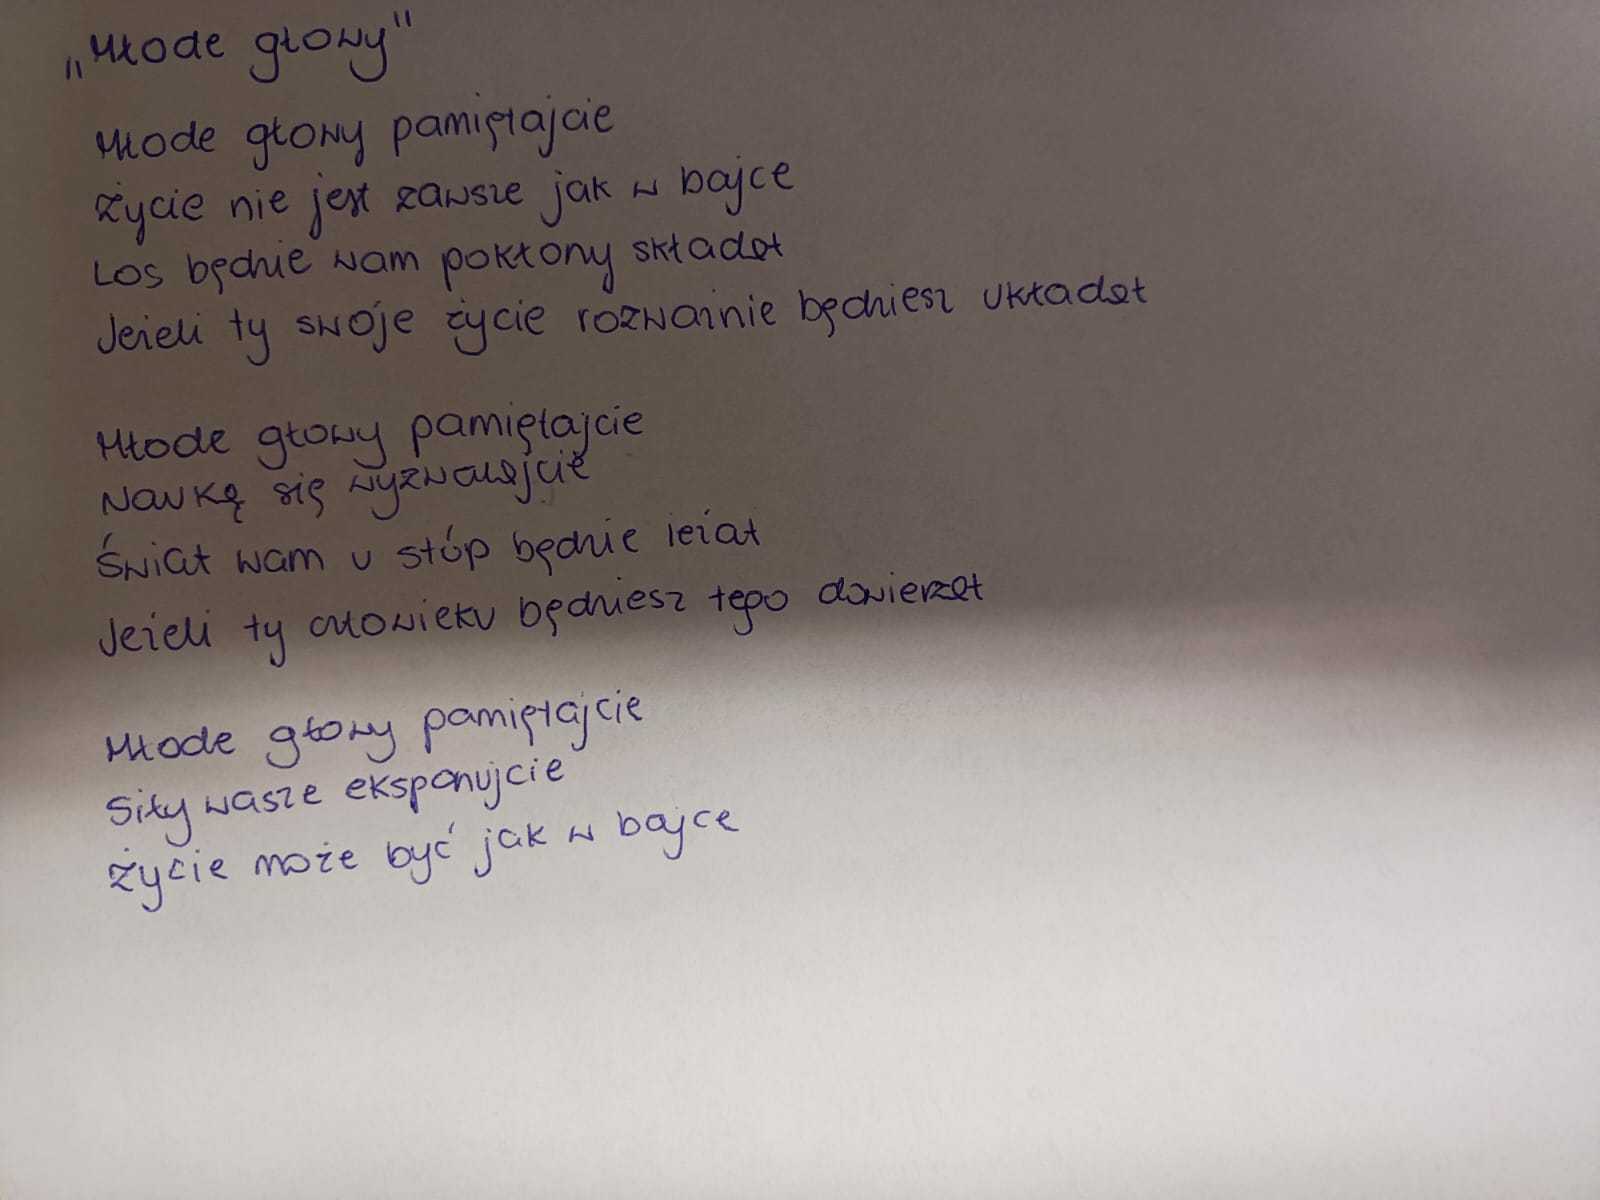 „Młode głowy"
Młode głowy pamiętajcie
Życie nie jest zawsze jak w bajce
Los będzie wam pokłony składał
Jeżeli ty swoje życie rozważnie będziesz układał
Młode głowy pamiętajcie
Nauką się wyzwalajcie
Świat wam u stóp będzie leżał
Jeżeli ty człowieku będziesz tego dowierzał
Młode głowy pamiętajcie
Siły wasze eksponujcie
Życie może być jak w bajce